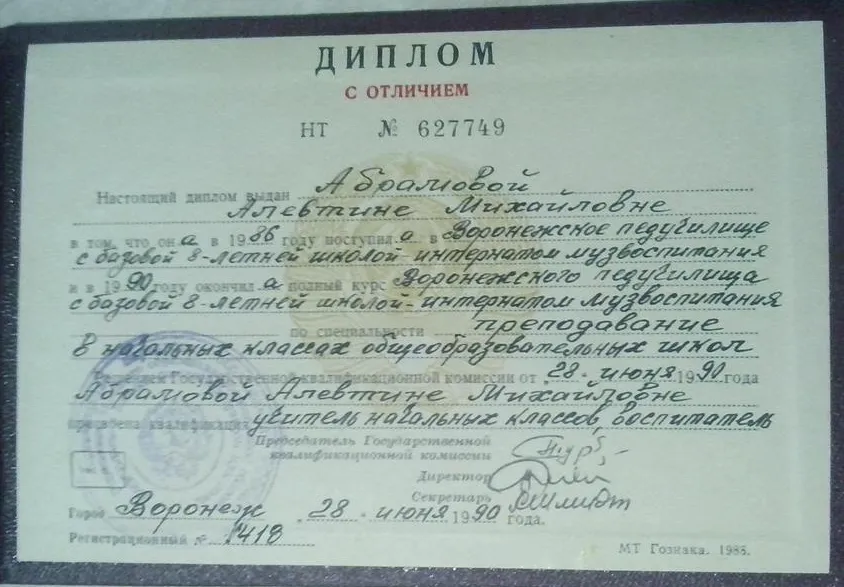 ДИПЛОМ
С ОТЛИЧИЕМ
НТ № 627749
Настоящий диплом выдан Абрамовой
Алевтине Михайловне
в том, что она в 1986 году поступила в Воронежское педучилище
с базовой 8-летней школой-интернатом музвоспитания
и в 1990 году окончила полный курс Воронежского педучилища
с базовой 8-летней школой-интернатом музвоспитания
по специальности преподавание
в начальных классах общеобразовательных школ
Решением Государственной квалификационной комиссии от „28" июня 1990 года
Абрамовой Алевтине Михайловне
присвоена квалификация учитель начальных классов, воспитатель
Председатель Государственной
квалификационной комиссии
Директор
Секретарь
Город Воронеж „28" июня 1990 года.
Регистрационный № 1418
МТ Гознака. 1988.